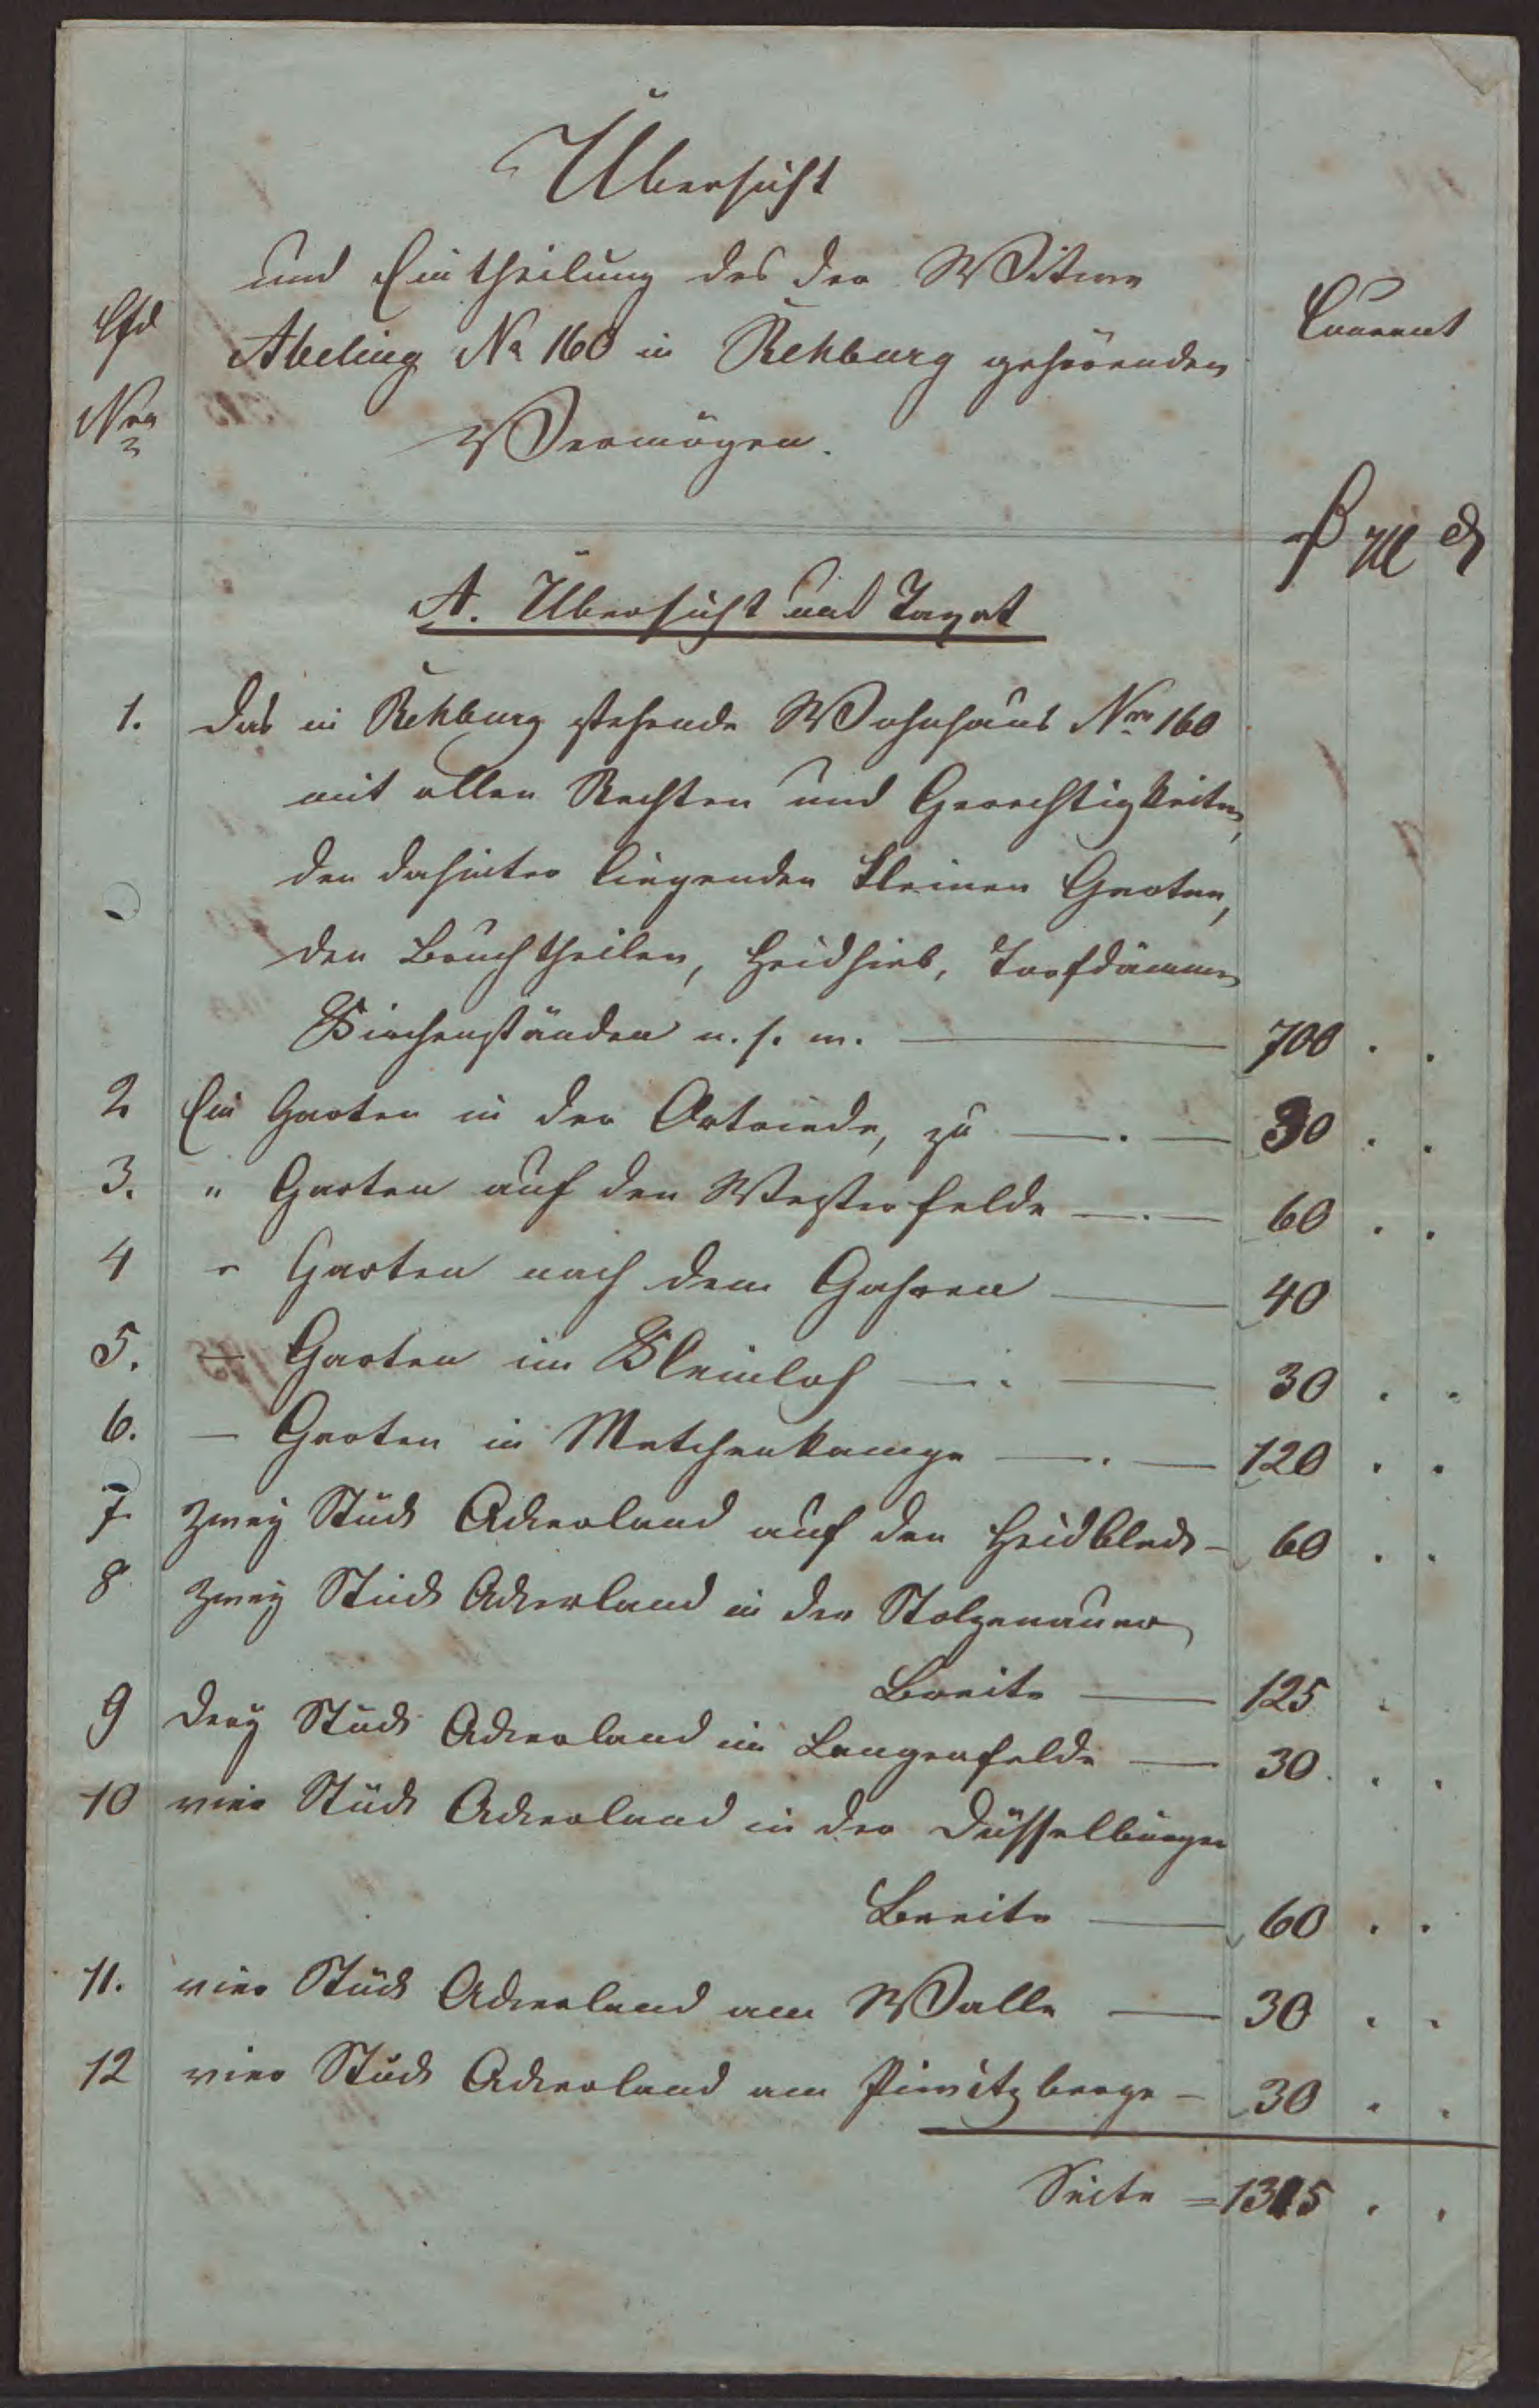 Übersicht
und Eintheilung des der Witwe
Abeling No 160 in Rehburg gehörenden
Vermögen.
Lfd
Nro
Courant
A. Übersicht und Taxat
1. Das in Rehburg stehende Wohnhaus Nro 160
mit allen Rechten und Gerechtigkeiten,
den dahinter liegenden kleinen Garten,
den Bruchtheilen, Heidhieb, Torfdämmen
Kirchenständen u. s. w. — 700 . .
2 Ein Garten in der Ortriede, zu — . — 30 . .
3. " Garten auf den Westerfelde — . — 60 . .
4 " Garten nach dem Gahren — 40
5. — Garten im Kleinloh — . — 30 . .
6. — Garten in Metchenkampe — . — 120 . .
7. zwey Stück Ackerland auf den Heidbleck — 60 . .
8 zwey Stück Ackerland in der Stolzenauer
Breite — 125 .
9 drey Stück Ackerland im Langenfelde — 30 . .
10 vier Stück Ackerland in der Düsselburger
Breite — 60 . .
11. vier Stück Ackerland am Walle — 30 . .
12 vier Stück Ackerland am berge — 30 . .
Seite = 1315 . .